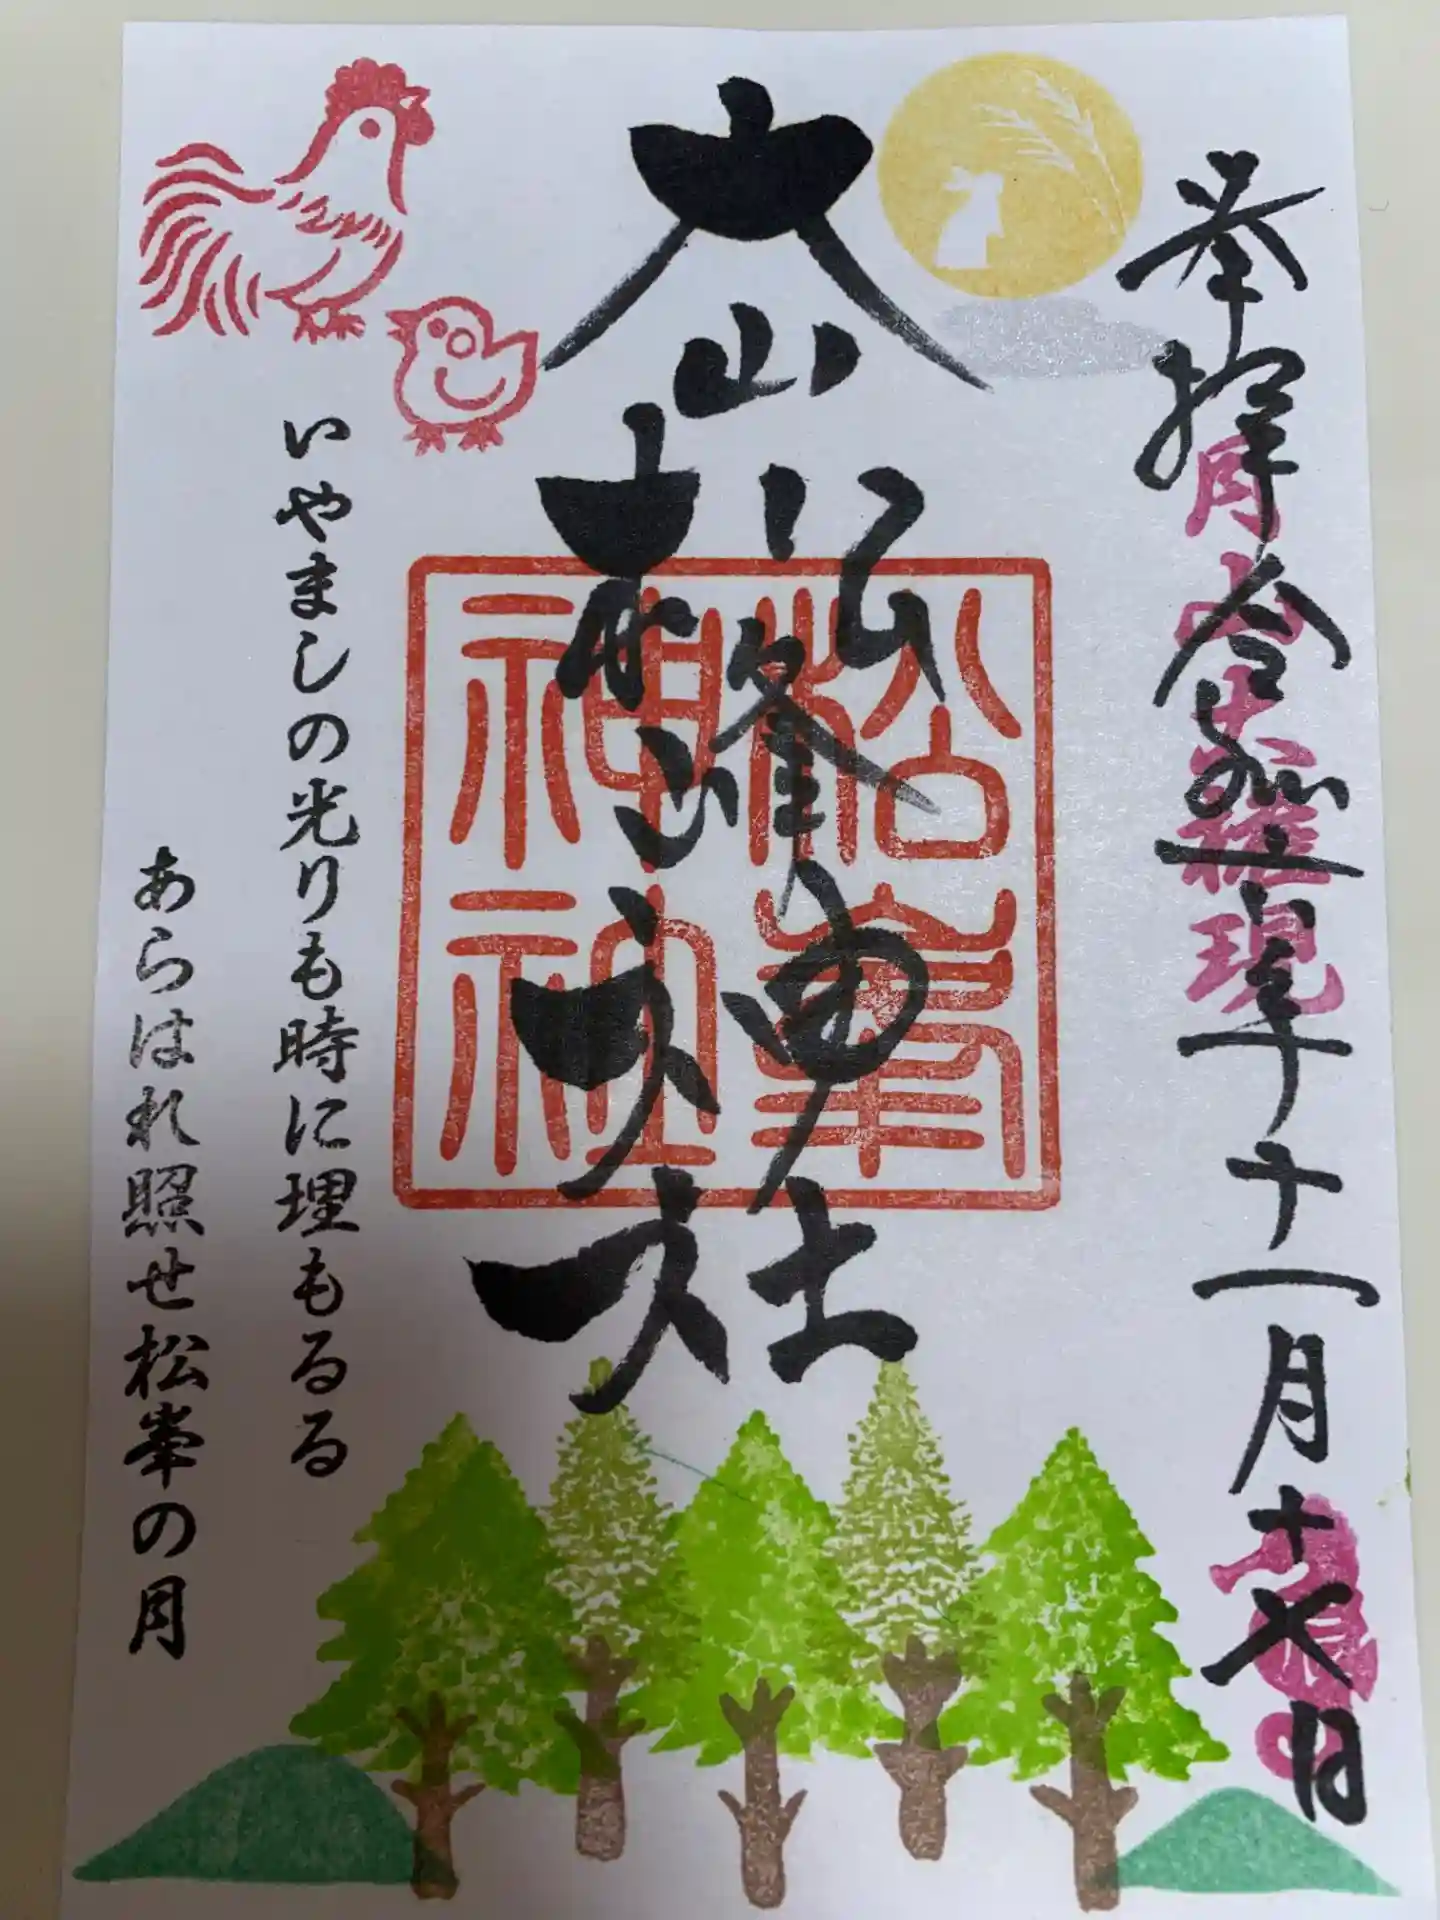 奉拝 令和二年十一月十七日
月山大権現
大山
松峯神社
松峯神社
いやましの光りも時に埋もるる
あらはれ照せ松峯の月